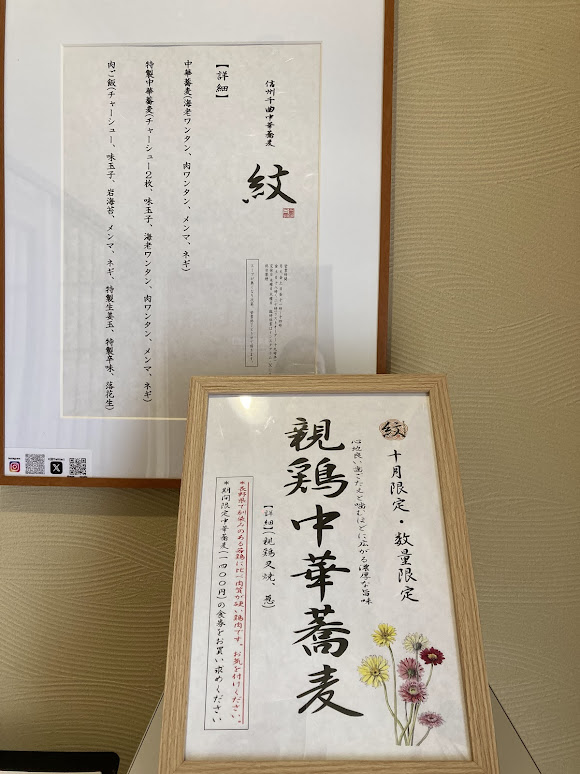 信州千曲中華蕎麦
紋
【詳細】
中華蕎麦(海老ワンタン、肉ワンタン、メンマ、ネギ)
特製中華蕎麦(チャーシュー2枚、味玉子、海老ワンタン、肉ワンタン、メンマ、ネギ)
肉ご飯(チャーシュー、味玉子、岩海苔、メンマ、ネギ、特製生姜玉、特製辛味、落花生)
紋
十月限定・数量限定
心地良い歯ごたえと噛むほどに広がる濃厚な旨味
親鶏中華蕎麦
【詳細】(親鶏叉焼、葱)
*長野県で馴染みのある若鶏に比べ肉質が硬い鶏肉です。お気を付けください。
*期間限定中華蕎麦(一四〇〇円)の食券をお買い求めください